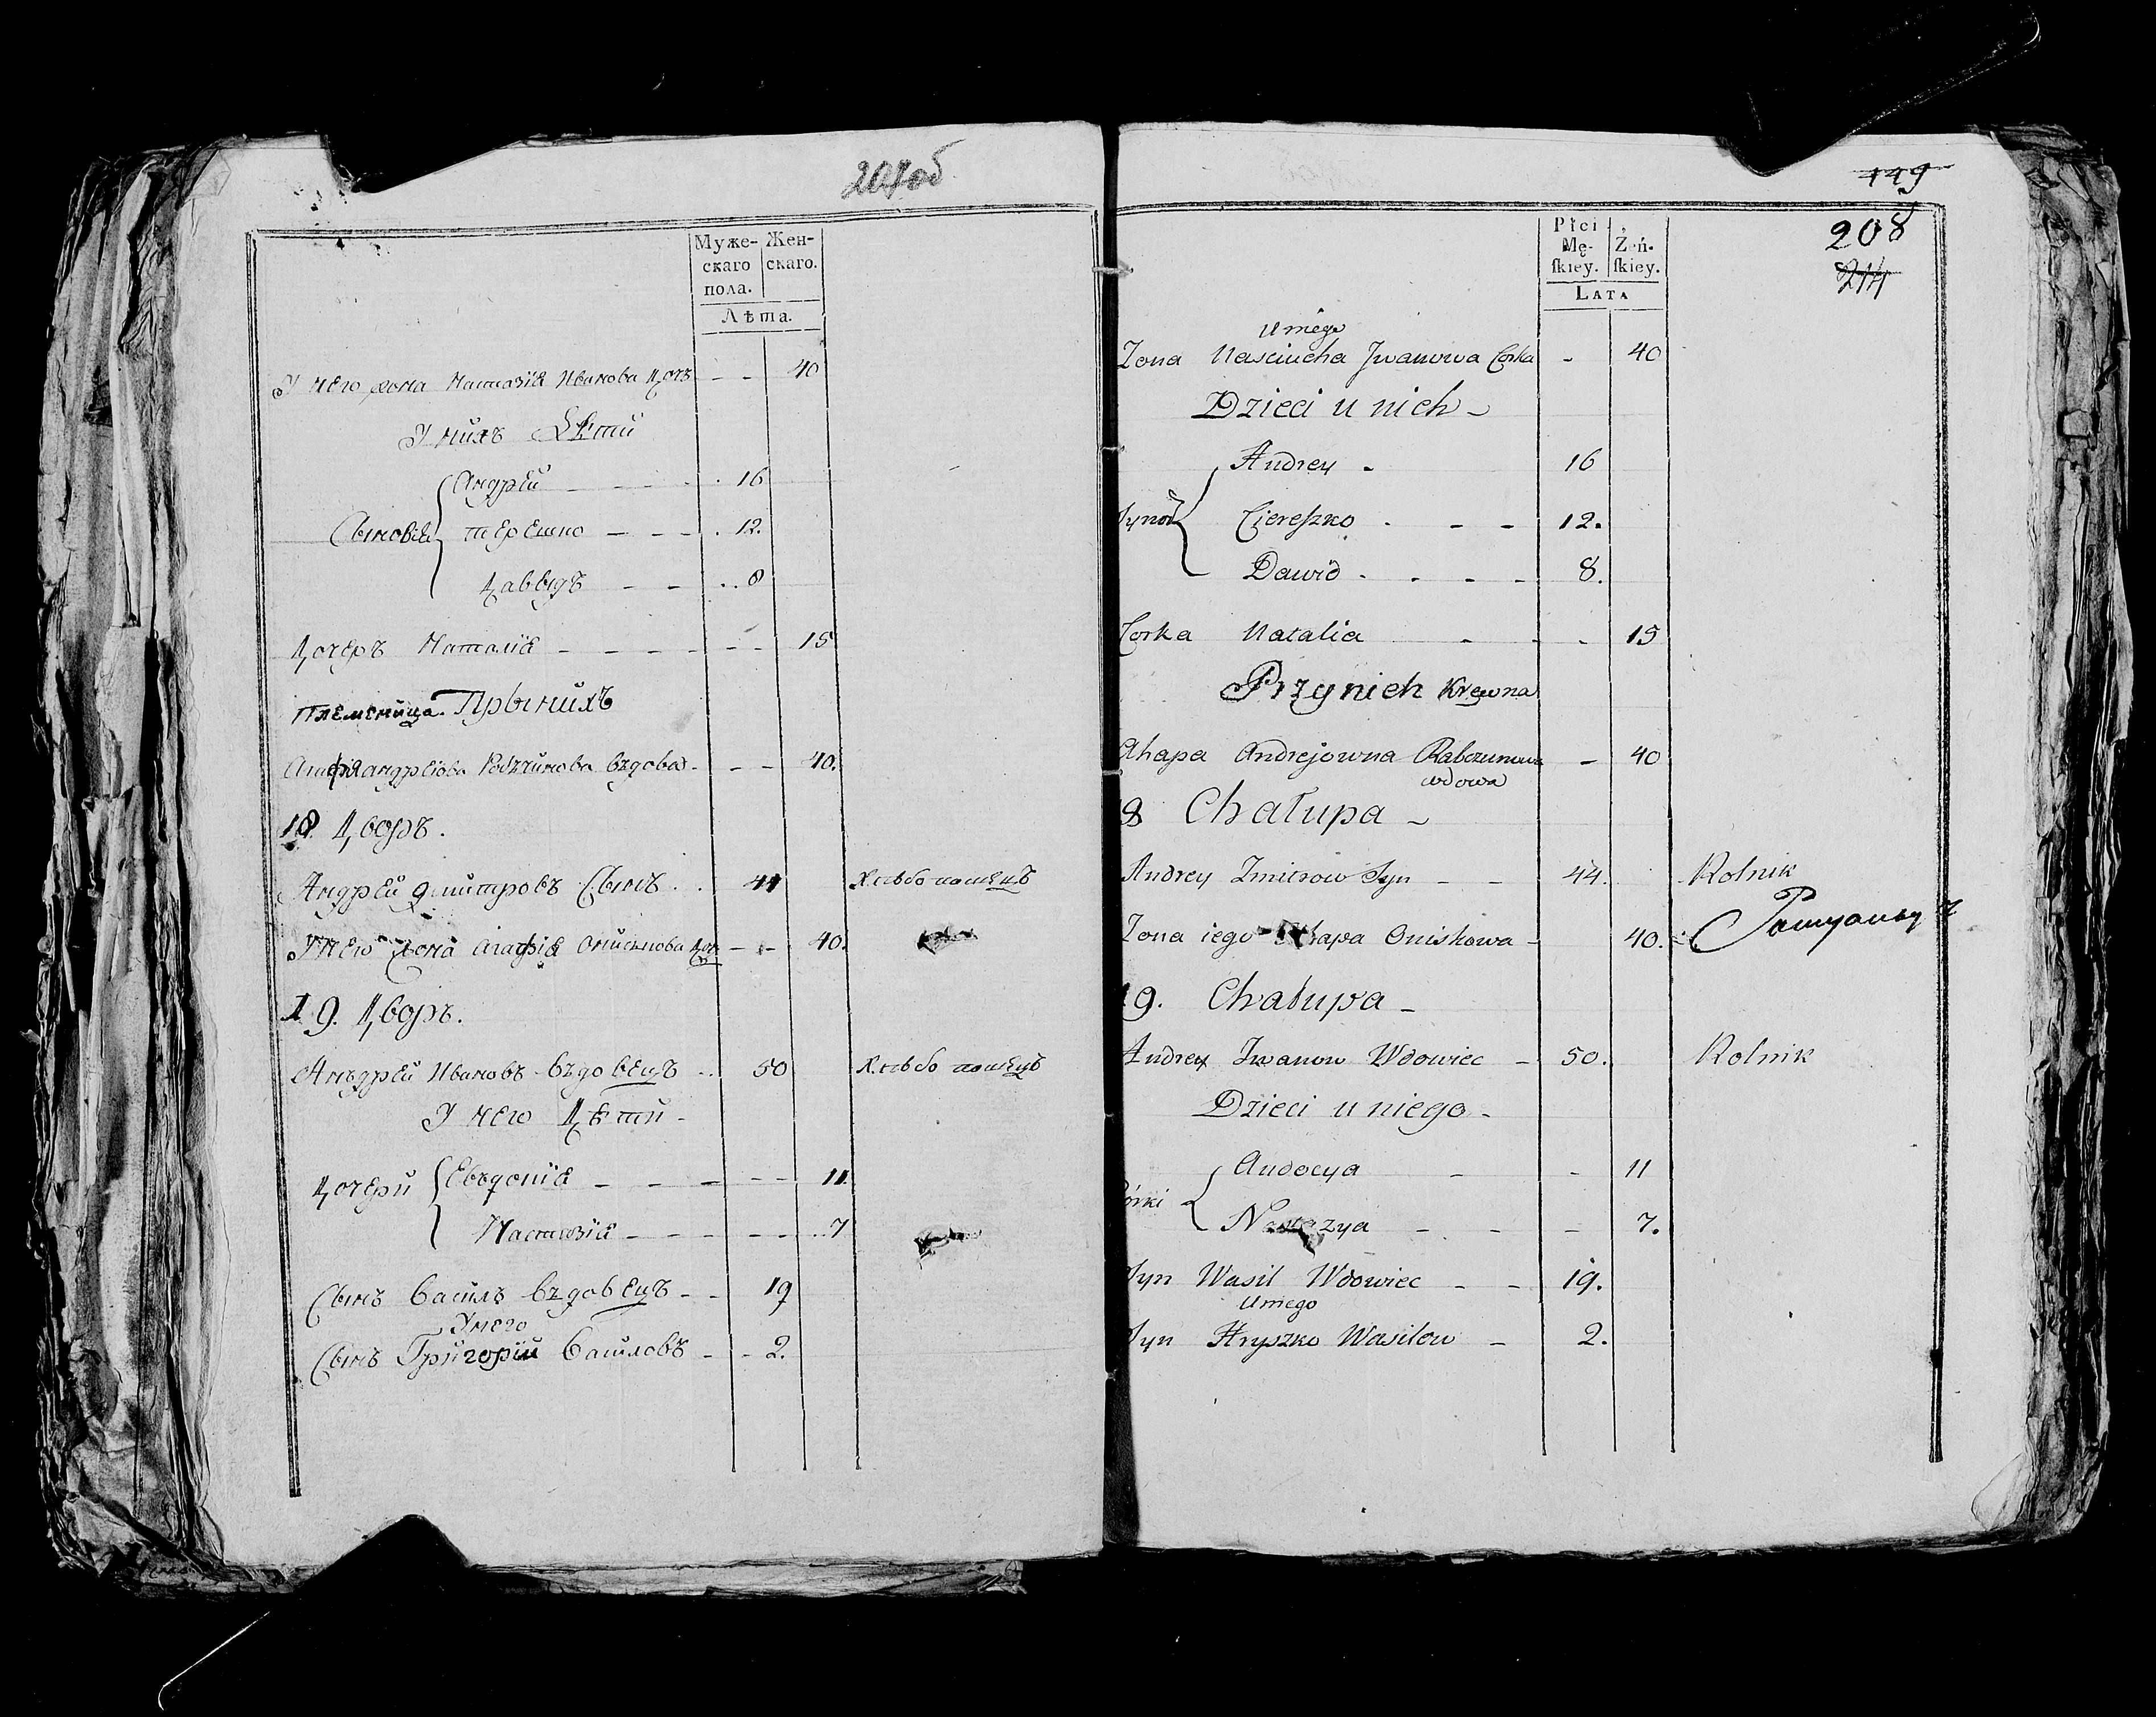 207об
Муже- Жен-
скаго скаго.
пола.
Лѣта.
У него жона Настазія Иванова Дочь - - 40
У нихъ Дѣти
Андрей - - - 16
Сыновія терешко - - - 12.
Давыдъ - - 8
Дочеръ Наталія - - - - - - 15
Племеница Прынихъ
Агафія андрєіова вздова - - - 40.
18. Дворъ.
Андрей дмитровъ Сынъ . . 44 Хлѣбопашецъ
У него жона агафіяОниськова Доч - - 40.
19. Дворъ.
Анъдрей Ивановъ вздовецъ .. 50 Хлѣбо пашецъ
У него Дѣти -
Дочери Евъдокія - - - - - 11
Настазія - - - - - 7
Сынъ Василъ вздовецъ - - 19
У него
Сынъ Григорій Василовъ - - 2.
149
208
214
Płci
Mę- Żeń-
ſkiey. ſkiey.
LATA
U niego
Zona Nasciucha Jwanowa Corka - 40
Dzieci u nich -
Andrey - 16
Synow Ciereszko . - - 12.
Dawid . . - - 8.
Corka Natalia - - - 15
Przy nich Krewna
Ahapa Andrejowna Rabczunowa - 40
wdowa
8 Chałupa -
Andrey Zmitrow Syn - - 44. Rolnik
Zona iego Ahapa Oniskowa - 40.
19. Chałupa -
Andrey Jwanow Wdowiec - 50. Rolnik
Dzieci u niego -
Audocya - - 11
Córki Nastazya - - - 7.
Syn Wasil Wdowiec - - 19.
U niego
Syn Hryszko Wasilow - 2.